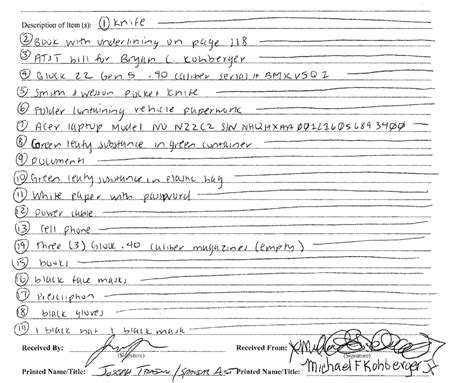 Description of Item(s): ① Knife
② Book with underlining on page 118
③ AT&T bill for Bryan C. Kohberger
④ Glock 22 Gen 5 .40 caliber serial #
⑤ Smith & Wesson pocket knife
⑥ Folder containing vehicle paperwork
⑦ Acer laptop Model NO N22C2 S/N
⑧ Green leafy substance in green container
⑨ Document
⑩ Green leafy substance in plastic bag
⑪ White paper with password
⑫ Power cable
⑬ Cell phone
⑭ Three (3) Glock .40 caliber magazines (empty)
⑮ books
⑯ black face masks
⑰ Prescription
⑱ black gloves
⑲ 1 black hat 1 black mask
Received By: Received From:
(Signature) (Signature)
Printed Name/Title: Joseph Printed Name/Title: Michael F Kohberger Jr